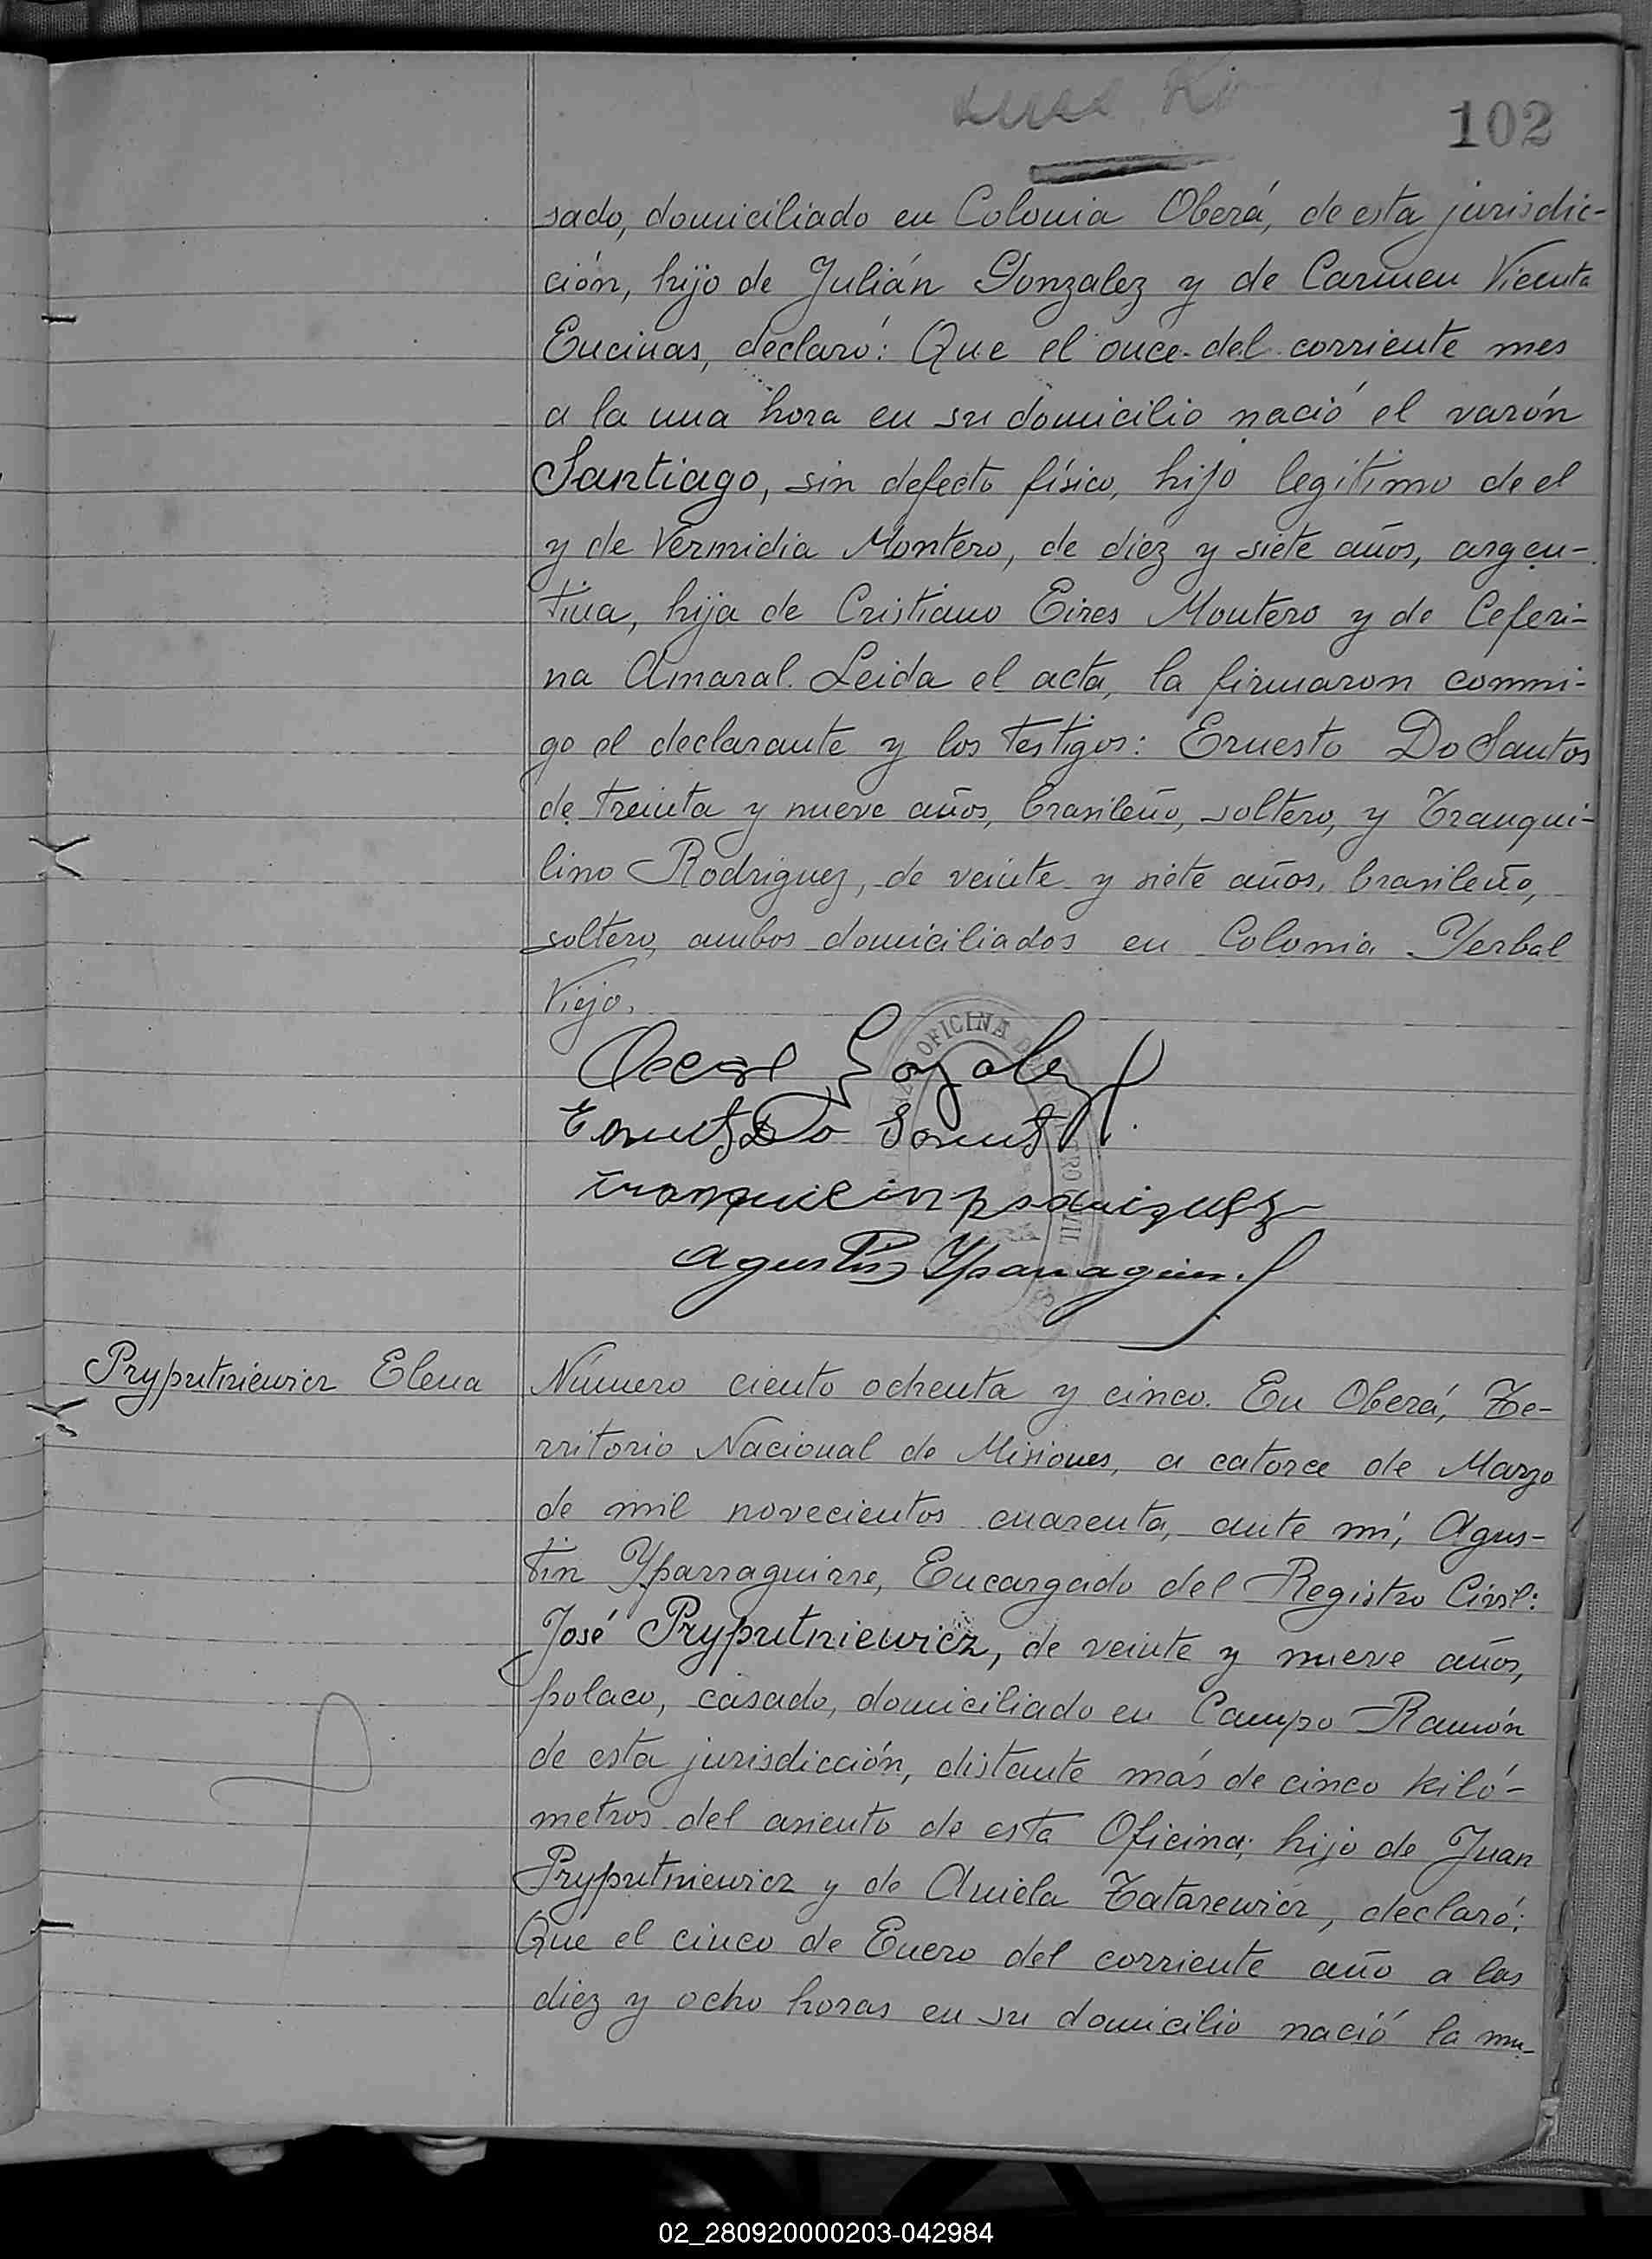 102
sado, domiciliado en Colonia Oberá, de esta jurisdic-
ción, hijo de Julián Gonzalez y de Carmen Vicenta
Encinas, declaró: Que el once del corriente mes
a la una hora en su domicilio nació el varón
Santiago, sin defecto físico, hijo legítimo de el
y de Vermidia Montero, de diez y siete años, argen-
tina, hija de Cristiano Eires Montero y de Ceferi-
na Amaral. Leida el acta, la firmaron conmi-
go el declarante y los testigos: Ernesto Do Santos
de treinta y nueve años, brasileño, soltero, y Tranqui-
lino Rodriguez, de veinte y siete años, brasileño,
soltero, ambos domiciliados en Colonia Yerbal
Viejo.
OFICINA
Pryputniewicz Elena
Número ciento ochenta y cinco. En Oberá, Te-
rritorio Nacional de Misiones, a catorce de Marzo
de mil novecientos cuarenta, ante mí, Agus-
tín Yparraguirre, Encargado del Registro Civil:
José Pryputniewicz, de veinte y nueve años,
polaco, casado, domiciliado en Campo Ramón
de esta jurisdicción, distante más de cinco kiló-
metros del asiento de esta Oficina; hijo de Juan
Pryputniewicz y de Aniela Tatarewicz, declaró:
Que el cinco de Enero del corriente año a las
diez y ocho horas en su domicilio nació la mu-
02_280920000203-042984